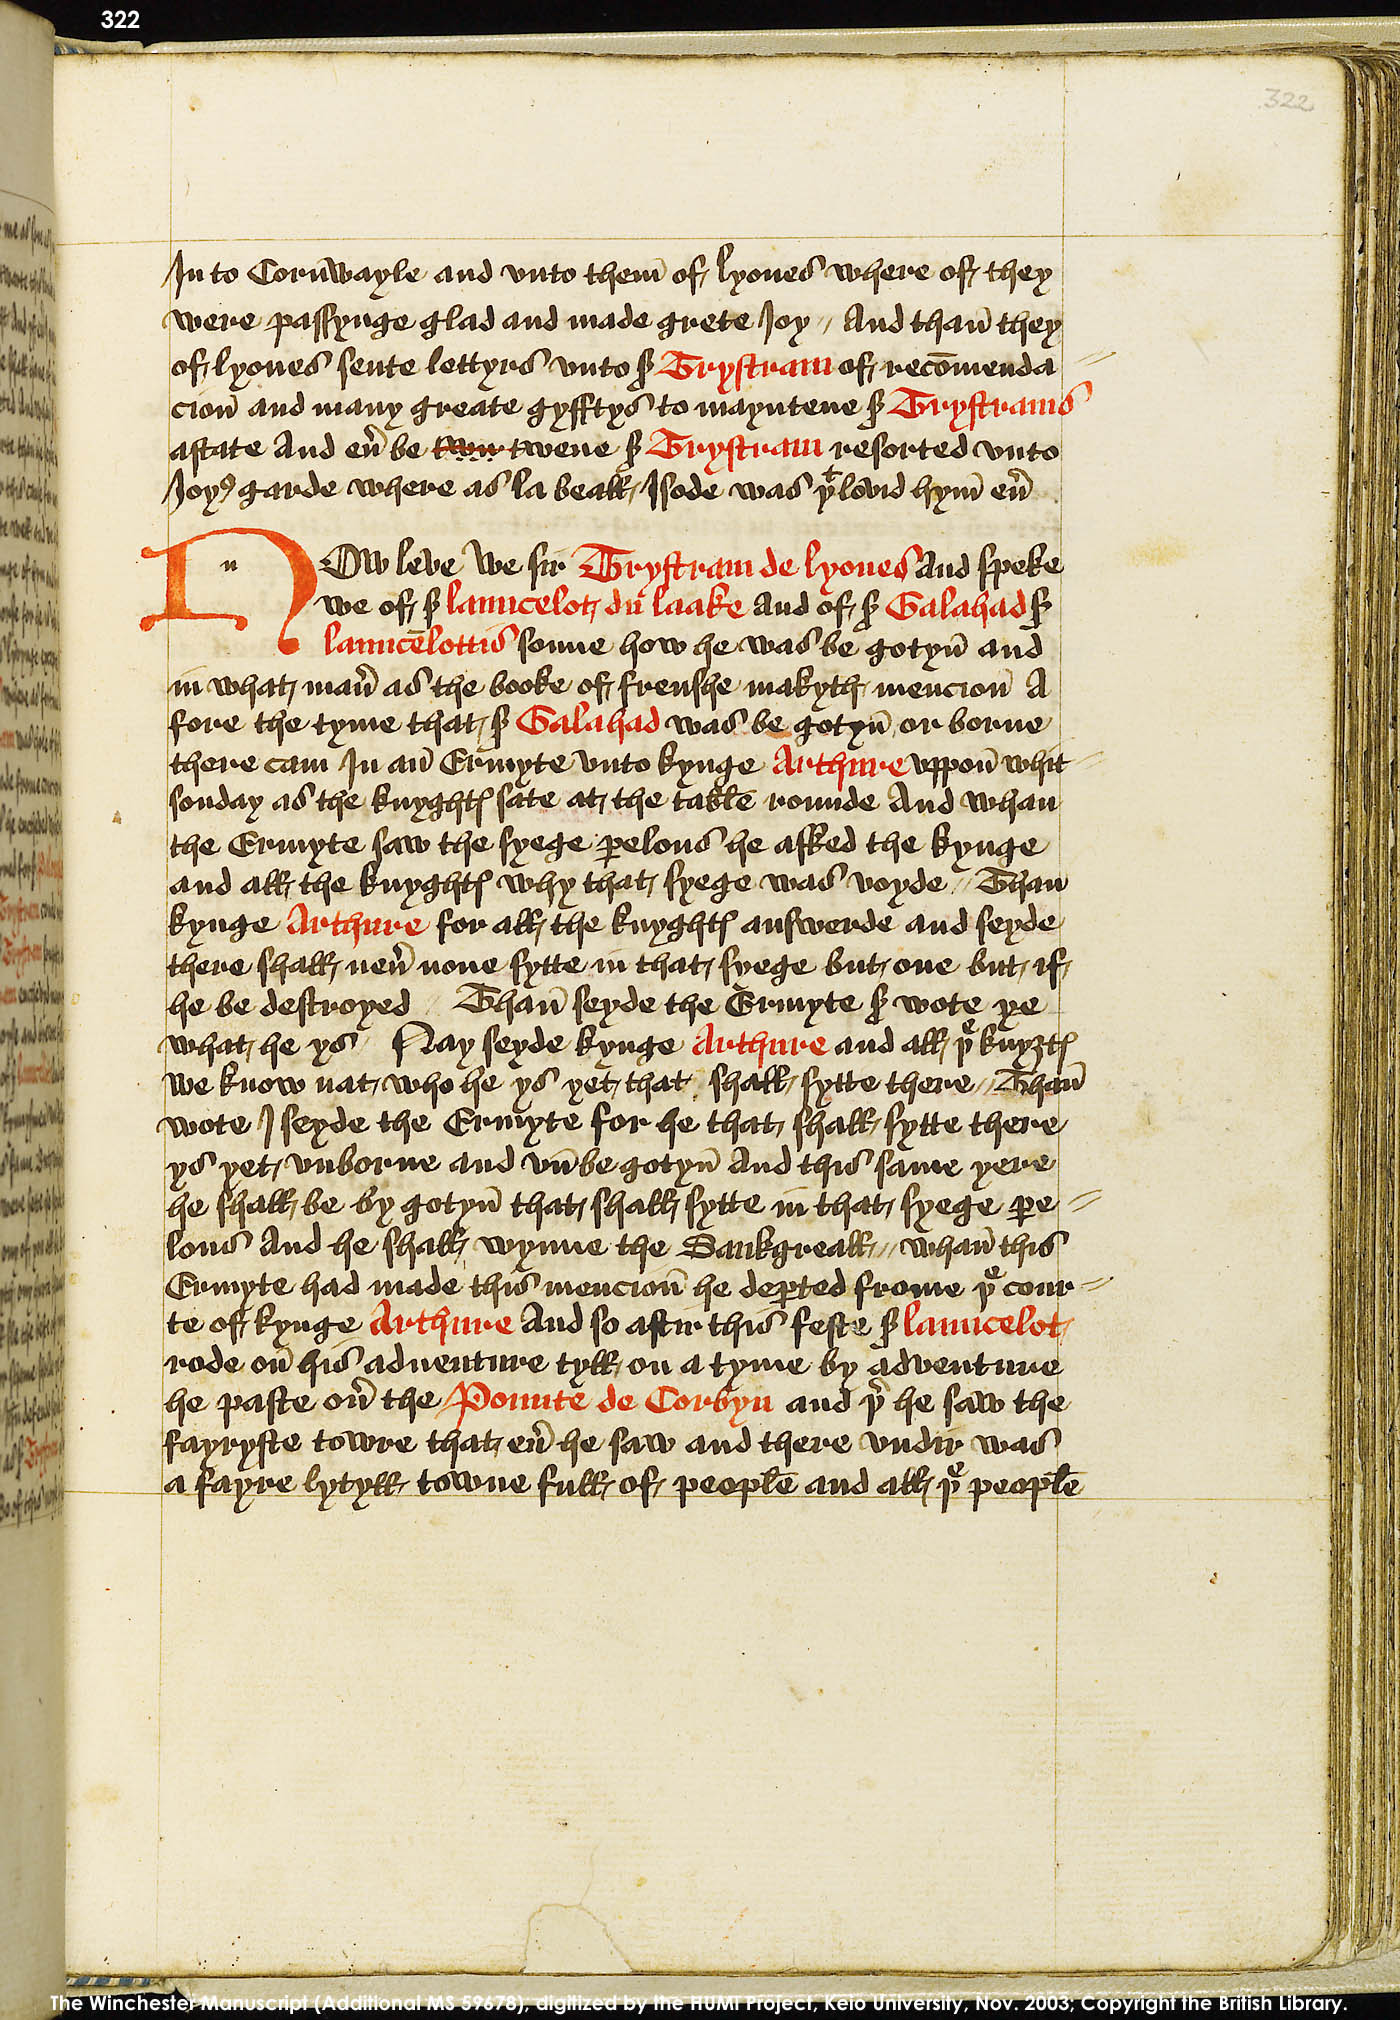 322
322
In to Cornwayle and vnto them̄ of lyones where of they
were passynge glad and made grete Joy // And than̄ they
of lyones sente lettyrs vnto sʳ Trystram of recōmenda //
cion̄ and many greate gyfftys to mayntene sʳ Trystrams
astate And eu̾ be twene sʳ Trystram resorted vnto
Joyꝰ garde where as la beall Isode was þᵗ lovid hym̄ eu̾
n
NOw leve we sir Trystram de lyones And speke
we of sʳ launcelot du laake And of sʳ Galahad sʳ
launcelottis sonne how he was be gotyn̄ and
in what man̾ as the booke of frenshe makyth mencion̄ A
fore the tyme that sʳ Galahad was be gotyn̄ or borne
there cam In an̄ Ermyte vnto kynge Arthure vppon̄ whit //
sonday as the knyghtꝭ sate at the table rounde And whan
the Ermyte saw the syege ꝑelous he asked the kynge
and all the knyghtꝭ why that syege was voyde // Than
kynge Arthure for all the knyghtꝭ answerde and seyde
there shall neu̾ none sytte in that syege but one but if
he be destroyed // Than̄ seyde the Ermyte sʳ wote ye
what he ys // Nay seyde kynge Arthure and all þᵉ knyȝtꝭ
we know nat who he ys yet that shall sytte there // Than̄
wote I seyde the Ermyte for he that shall sytte there
ys yet vnborne and vn̄be gotyn̄ And this same yere
he shall be by gotyn̄ that shall sytte in that syege ꝑe //
lous And he shall wynne the Sankgreall // whan̄ this
Ermyte had made this mencion̄ he deꝑted frome þᵉ cour //
te of kynge Arthure And so aftir this feste sʳ launcelot
rode on̄ his aduenture tyll on a tyme by adventure
he paste ou̾ the Pounte de Corbyn and þ̾ he saw the
fayryste towre that eu̾ he saw and there vndir was
a fayre lytyll towne full of people and all þᵉ people
The Winchester Manuscript (Additional MS 59678), digitized by the HUMI Project, Keio University, Nov. 2003; Copyright the British Library.